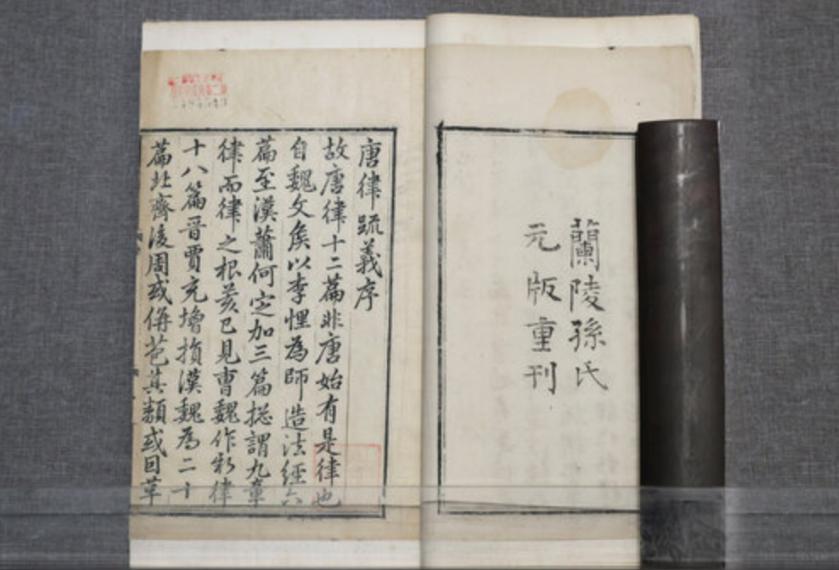 蘭陵孫氏
元版重刊
唐律疏義序
故唐律十二篇非唐始有是律也
自魏文矦以李悝為師造法經六
篇至漢蕭何定加三篇揔謂九章
律而律之根荄已見曹魏作新律
十八篇晋賈充增損漢魏為二十
篇北齊後周或併苞其類或因革